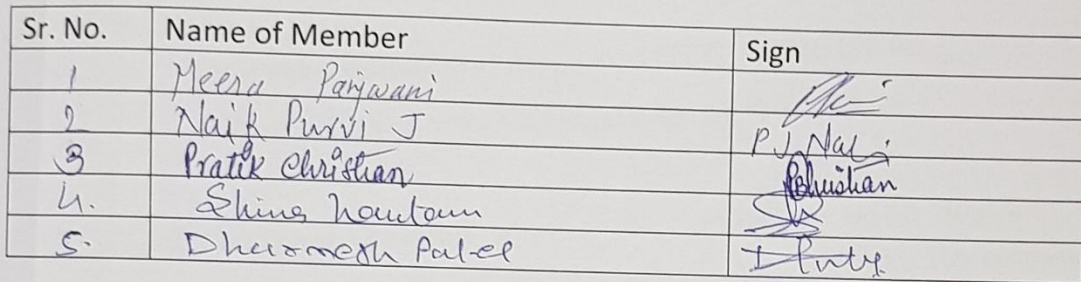 Sr. No. Name of Member Sign
1 Meera Panjwani
2 Naik Purvi J P.J. Naik
3 Pratik Christian PChristian
4. Shina
5. Dharmesh Patel